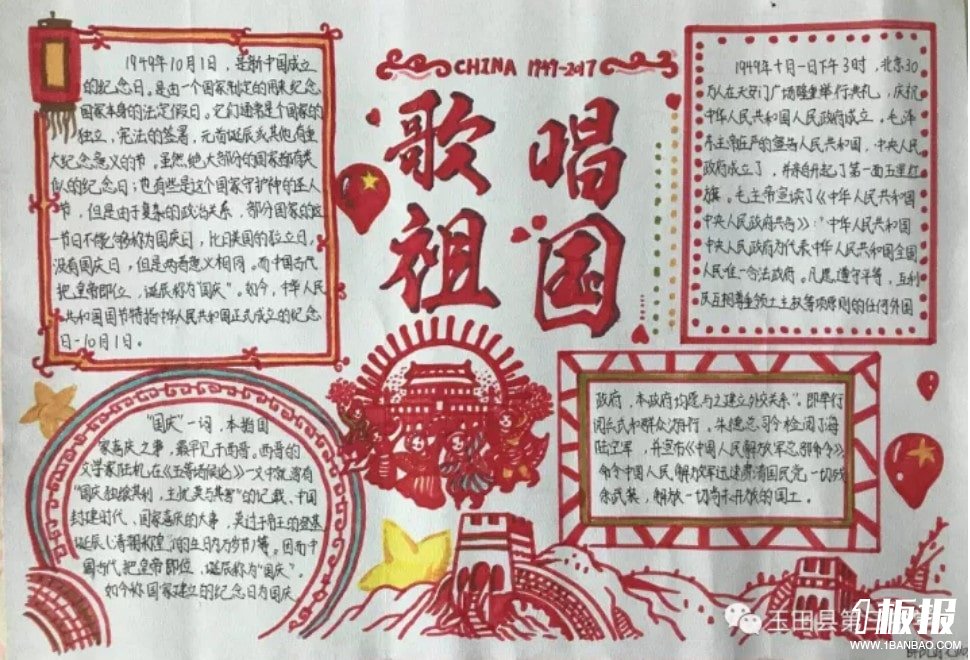 CHINA 1949-2017
歌唱
祖国
1949年10月1日，是新中国成立
的纪念日。是由一个国家制定的用来纪念
国家本身的法定假日。它们通常是个国家的
独立、宪法的签署，元首诞辰或其他有重
大纪念意义的节，虽然绝大部分的国家都有类
似的纪念日；也有些是这个国家守护神的圣人
节，但是由于复杂的政治关系，部分国家的这
一节日不能够称为国庆日，比如美国的独立日，
没有国庆日，但是两者意义相同。而中国古代
把皇帝即位、诞辰称为"国庆"。如今，中华人民
共和国国节特指中华人民共和国正式成立的纪念
日-10月1日。
1949年十月一日下午3时，北京30
万人在天安门广场隆重举行典礼，庆祝
中华人民共和国人民政府成立，毛泽
东主席庄严的宣告人民共和国，中央人民
政府成立了，并亲自升起了第一面五星红
旗。毛主席宣读了《中华人民共和国
中央人民政府公告》："中华人民共和国
中央人民政府为代表中华人民共和国全国
人民唯一合法政府。凡愿遵守平等，互利
及互相尊重领土主权等项原则的任何外国
"国庆"一词，本指国
家喜庆之事，最早见于西晋。西晋的
文学家陆机在《五等诸侯论》一文中就曾有
"国庆独飨其利，主忧莫与其害"的记载、中国
封建时代、国家喜庆的大事，莫过于帝王的登基
诞辰(清朝称皇
的生日为万岁节)等。因而中
国古代把皇帝即位、诞辰称为"国庆"。
如今称国家建立的纪念日为国庆
政府，本政府均愿与之建立外交关系"。即举行
阅兵式和群众游行。朱德总司令检阅了海
陆空军，并宣布《中国人民解放军总部命令》
命令中国人民解放军迅速肃清国民党一切残
余武装，解放一切尚未开放的国土。
玉田县第
板报
WWW.1BANBAO.COM